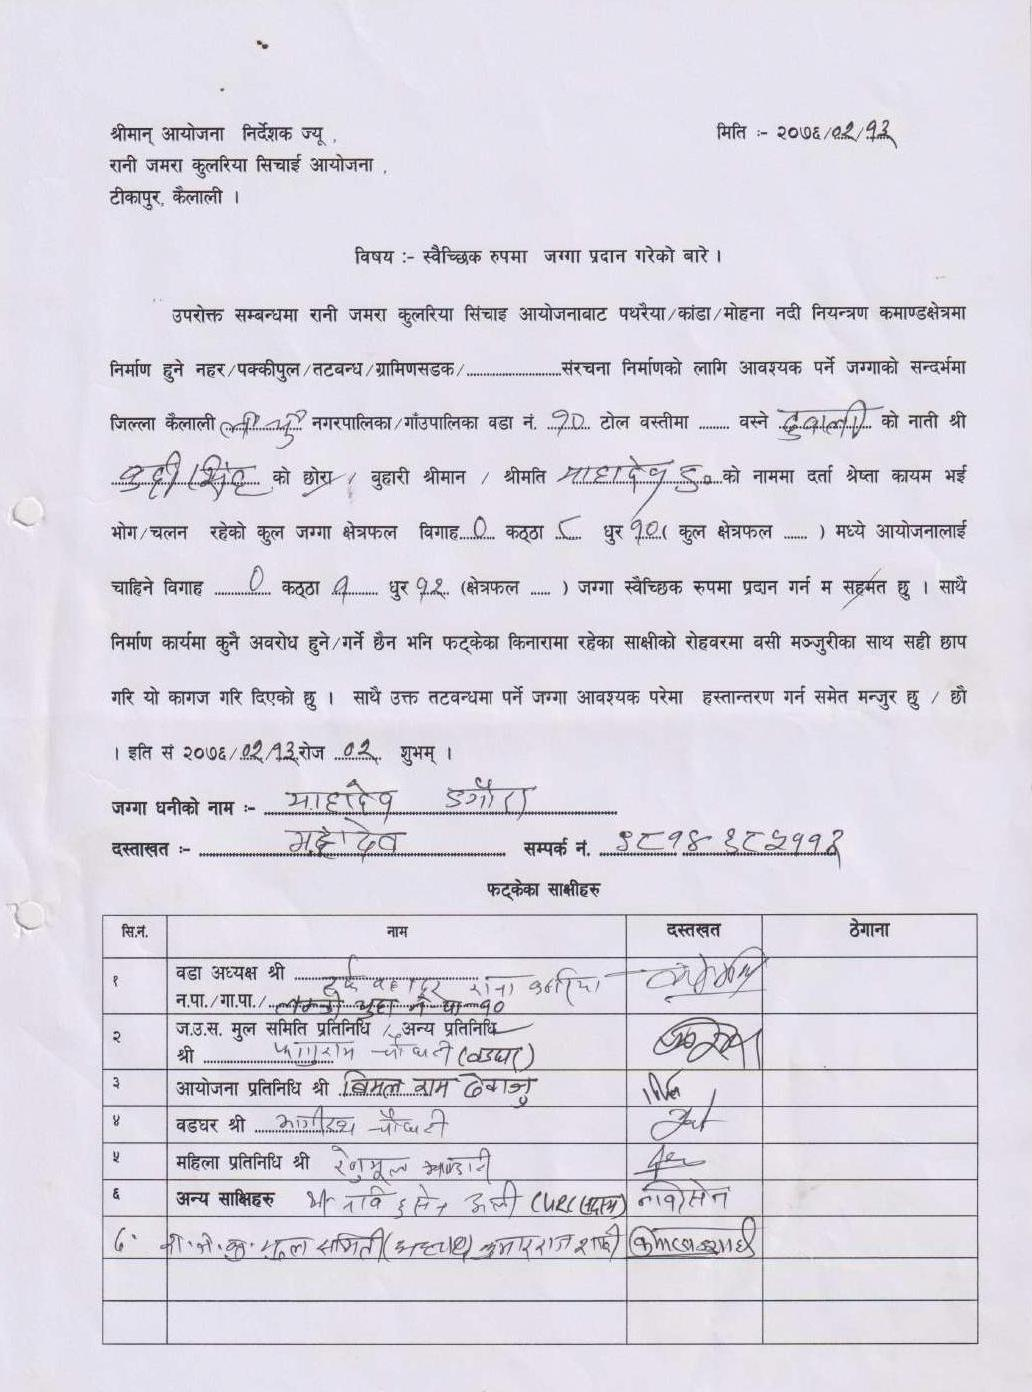 श्रीमान् आयोजना निर्देशक ज्यू , मिति :- २०७६/०२/१३
रानी जमरा कुलरिया सिचाई आयोजना ,
टीकापुर, कैलाली ।
विषय :- स्वैच्छिक रुपमा जग्गा प्रदान गरेको बारे ।
उपरोक्त सम्बन्धमा रानी जमरा कुलरिया सिंचाइ आयोजनाबाट पथरैया/कांडा/मोहना नदी नियन्त्रण कमाण्डक्षेत्रमा
निर्माण हुने नहर/पक्कीपुल/तटबन्ध/ग्रामिणसडक/............................संरचना निर्माणको लागि आवश्यक पर्ने जग्गाको सन्दर्भमा
जिल्ला कैलाली नगरपालिका/गाँउपालिका वडा नं. १० टोल वस्तीमा ........ वस्ने को नाती श्री
को छोरा / बुहारी श्रीमान / श्रीमति माहादेव ड० को नाममा दर्ता श्रेष्ता कायम भई
भोग/चलन रहेको कुल जग्गा क्षेत्रफल विगाह 0 कठ्ठा ८ धुर १० ( कुल क्षेत्रफल ...... ) मध्ये आयोजनालाई
चाहिने विगाह 0 कठ्ठा १ धुर १२ (क्षेत्रफल ...... ) जग्गा स्वैच्छिक रुपमा प्रदान गर्न म सहमत छु । साथै
निर्माण कार्यमा कुनै अवरोध हुने/गर्ने छैन भनि फट्केका किनारामा रहेका साक्षीको रोहवरमा बसी मञ्जुरीका साथ सही छाप
गरि यो कागज गरि दिएको छु । साथै उक्त तटवन्धमा पर्ने जग्गा आवश्यक परेमा हस्तान्तरण गर्न समेत मन्जुर छु / छौ
। इति सं २०७६/०२/१३ रोज ०२ शुभम् ।
जग्गा धनीको नाम :- माहादेव डगौरा
दस्ताखत :- महादेव सम्पर्क नं. ९८१४९८५११२
फट्केका साक्षीहरु
सि.नं. नाम दस्तखत ठेगाना
१ वडा अध्यक्ष श्री
न.पा./गा.पा./ १०
२ ज.उ.स. मुल समिति प्रतिनिधि / अन्य प्रतिनिधि
श्री फागुराम चौधरी (वडघर)
३ आयोजना प्रतिनिधि श्री बिमल राम
४ वडघर श्री भागीरथ चौधरी
५ महिला प्रतिनिधि श्री
६ अन्य साक्षिहरु अली
मूल समिती कुमारराज शाही